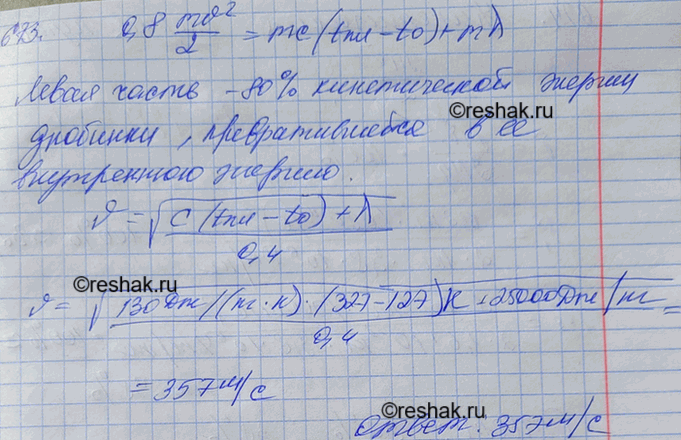 673. 0,8 mv²/2 = mc(tпл - t0) + mλ
Левая часть - 80% кинетической энергии
©reshak.ru
дробинки, превратившейся в ее
внутреннюю энергию.
v = √(c(tпл - t0) + λ / 0,4)
©reshak.ru
v = √(130 Дж/(кг·К)·(327-127)К + 25000 Дж/кг / 0,4) =
= 357 м/с
©reshak.ru
Ответ: 357 м/с